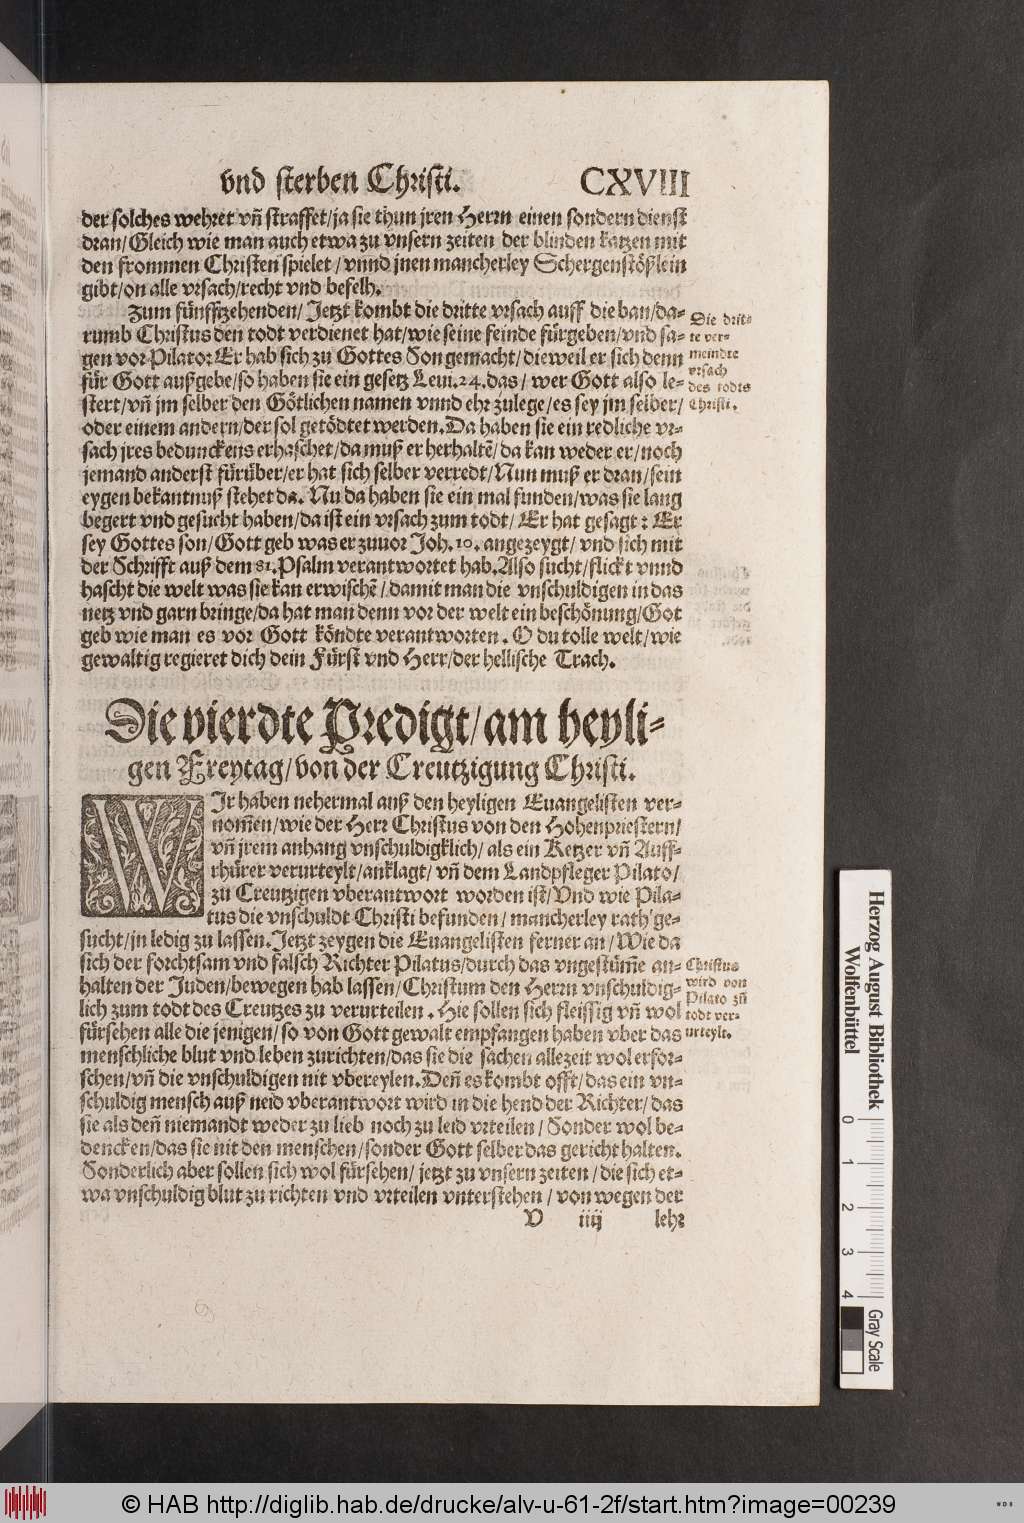 vnd sterben Christi. CXVIII
der solches wehret vñ straffet/ja sie thun jren Herrn einen sondern dienst
dran/Gleich wie man auch etwa zu vnsern zeiten der blinden katzen mit
den frommen Christen spielet/vnnd jnen mancherley Schergenstößlein
gibt/on alle vrsach/recht vnd befelh.
Zum fünfftzehenden/Jetzt kombt die dritte vrsach auff die ban/da-
rumb Christus den todt verdienet hat/wie seine feinde fürgeben/vnd sa-
gen vor Pilato: Er hab sich zu Gottes Son gemacht/dieweil er sich denn
für Gott außgebe/so haben sie ein gesetz Leui.24.das/wer Gott also le-
stert/vñ jm selber den Götlichen namen vnnd ehr zulege/es sey jm selber/
oder einem andern/der sol getödtet werden.Da haben sie ein redliche vr-
sach jres bedunckens erhaschet/da muß er herhaltē/da kan weder er/noch
jemand anderst fürüber/er hat sich selber verredt/Nun muß er dran/sein
eygen bekantnuß stehet da. Nu da haben sie ein mal funden/was sie lang
begert vnd gesucht haben/da ist ein vrsach zum todt/Er hat gesagt: Er
sey Gottes son/Gott geb was er zuuor Joh.10.angezeygt/vnd sich mit
der Schrifft auß dem 81.Psalm verantwortet hab.Also sucht/flickt vnnd
hascht die welt was sie kan erwischē/damit man die vnschuldigen in das
netz vnd garn bringe/da hat man denn vor der welt ein beschönung/Got
geb wie man es vor Gott köndte verantworten. O du tolle welt/wie
gewaltig regieret dich dein Fürst vnd Herr/der hellische Trach.
Die drit-
te ver-
meindte
vrsach
des todts
Christi.
Die vierdte Predigt/am heyli-
gen Freytag/von der Creutzigung Christi.
WJr haben nehermal auß den heyligen Euangelisten ver-
nom̄en/wie der Herr Christus von den Hohenpriestern/
vñ jrem anhang vnschuldigklich/als ein Ketzer vñ Auff-
rhürer verurteylt/anklagt/vñ dem Landpfleger Pilato/
zu Creutzigen vberantwort worden ist/Vnd wie Pila-
tus die vnschuldt Christi befunden/mancherley rath ge-
sucht/jn ledig zu lassen.Jetzt zeygen die Euangelisten ferner an/Wie da
sich der forchtsam vnd falsch Richter Pilatus/durch das vngestüm̄e an-
halten der Juden/bewegen hab lassen/Christum den Herrn vnschuldig-
lich zum todt des Creutzes zu verurteilen. Hie sollen sich fleissig vñ wol
fürsehen alle die jenigen/so von Gott gewalt empfangen haben vber das
menschliche blut vnd leben zurichten/das sie die sachen allezeit wol erfor-
schen/vñ die vnschuldigen nit vbereylen.Deñ es kombt offt/das ein vn-
schuldig mensch auß neid vberantwort wird in die hend der Richter/das
sie als deñ niemandt weder zu lieb noch zu leid vrteilen/Sonder wol be-
dencken/das sie nit den menschen/sonder Gott selber das gericht halten.
Sonderlich aber sollen sich wol fürsehen/jetzt zu vnsern zeiten/die sich et-
wa vnschuldig blut zu richten vnd vrteilen vnterstehen/von wegen der
Christus
wird von
Pilato zū
todt ver-
urteylt.
V iiij lehr
Herzog August Bibliothek
Wolfenbüttel
0 1 2 3 4
Gray Scale
© HAB http://diglib.hab.de/drucke/alv-u-61-2f/start.htm?image=00239
WDB